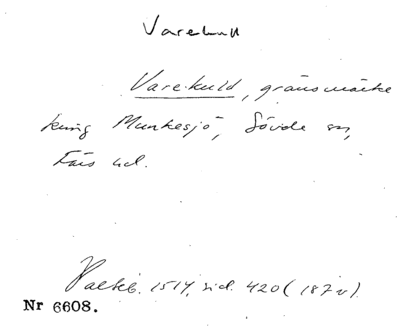 Varekull
Varekuld, gränsmärke
kring Munkesjö, Sövde sn,
Färs hd.
Palteb. 1514, sid. 420 (187 v).
Nr 6608.